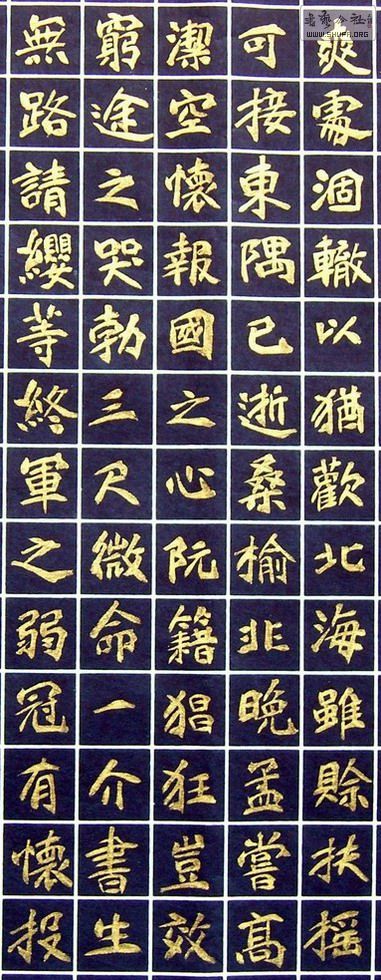 WWW.SHUFA.ORG
爽處涸轍以猶歡北海雖賒扶搖
可接東隅已逝桑榆非晚孟嘗高
潔空懷報國之心阮籍猖狂豈效
窮途之哭勃三尺微命一介書生
無路請纓等終軍之弱冠有懷投